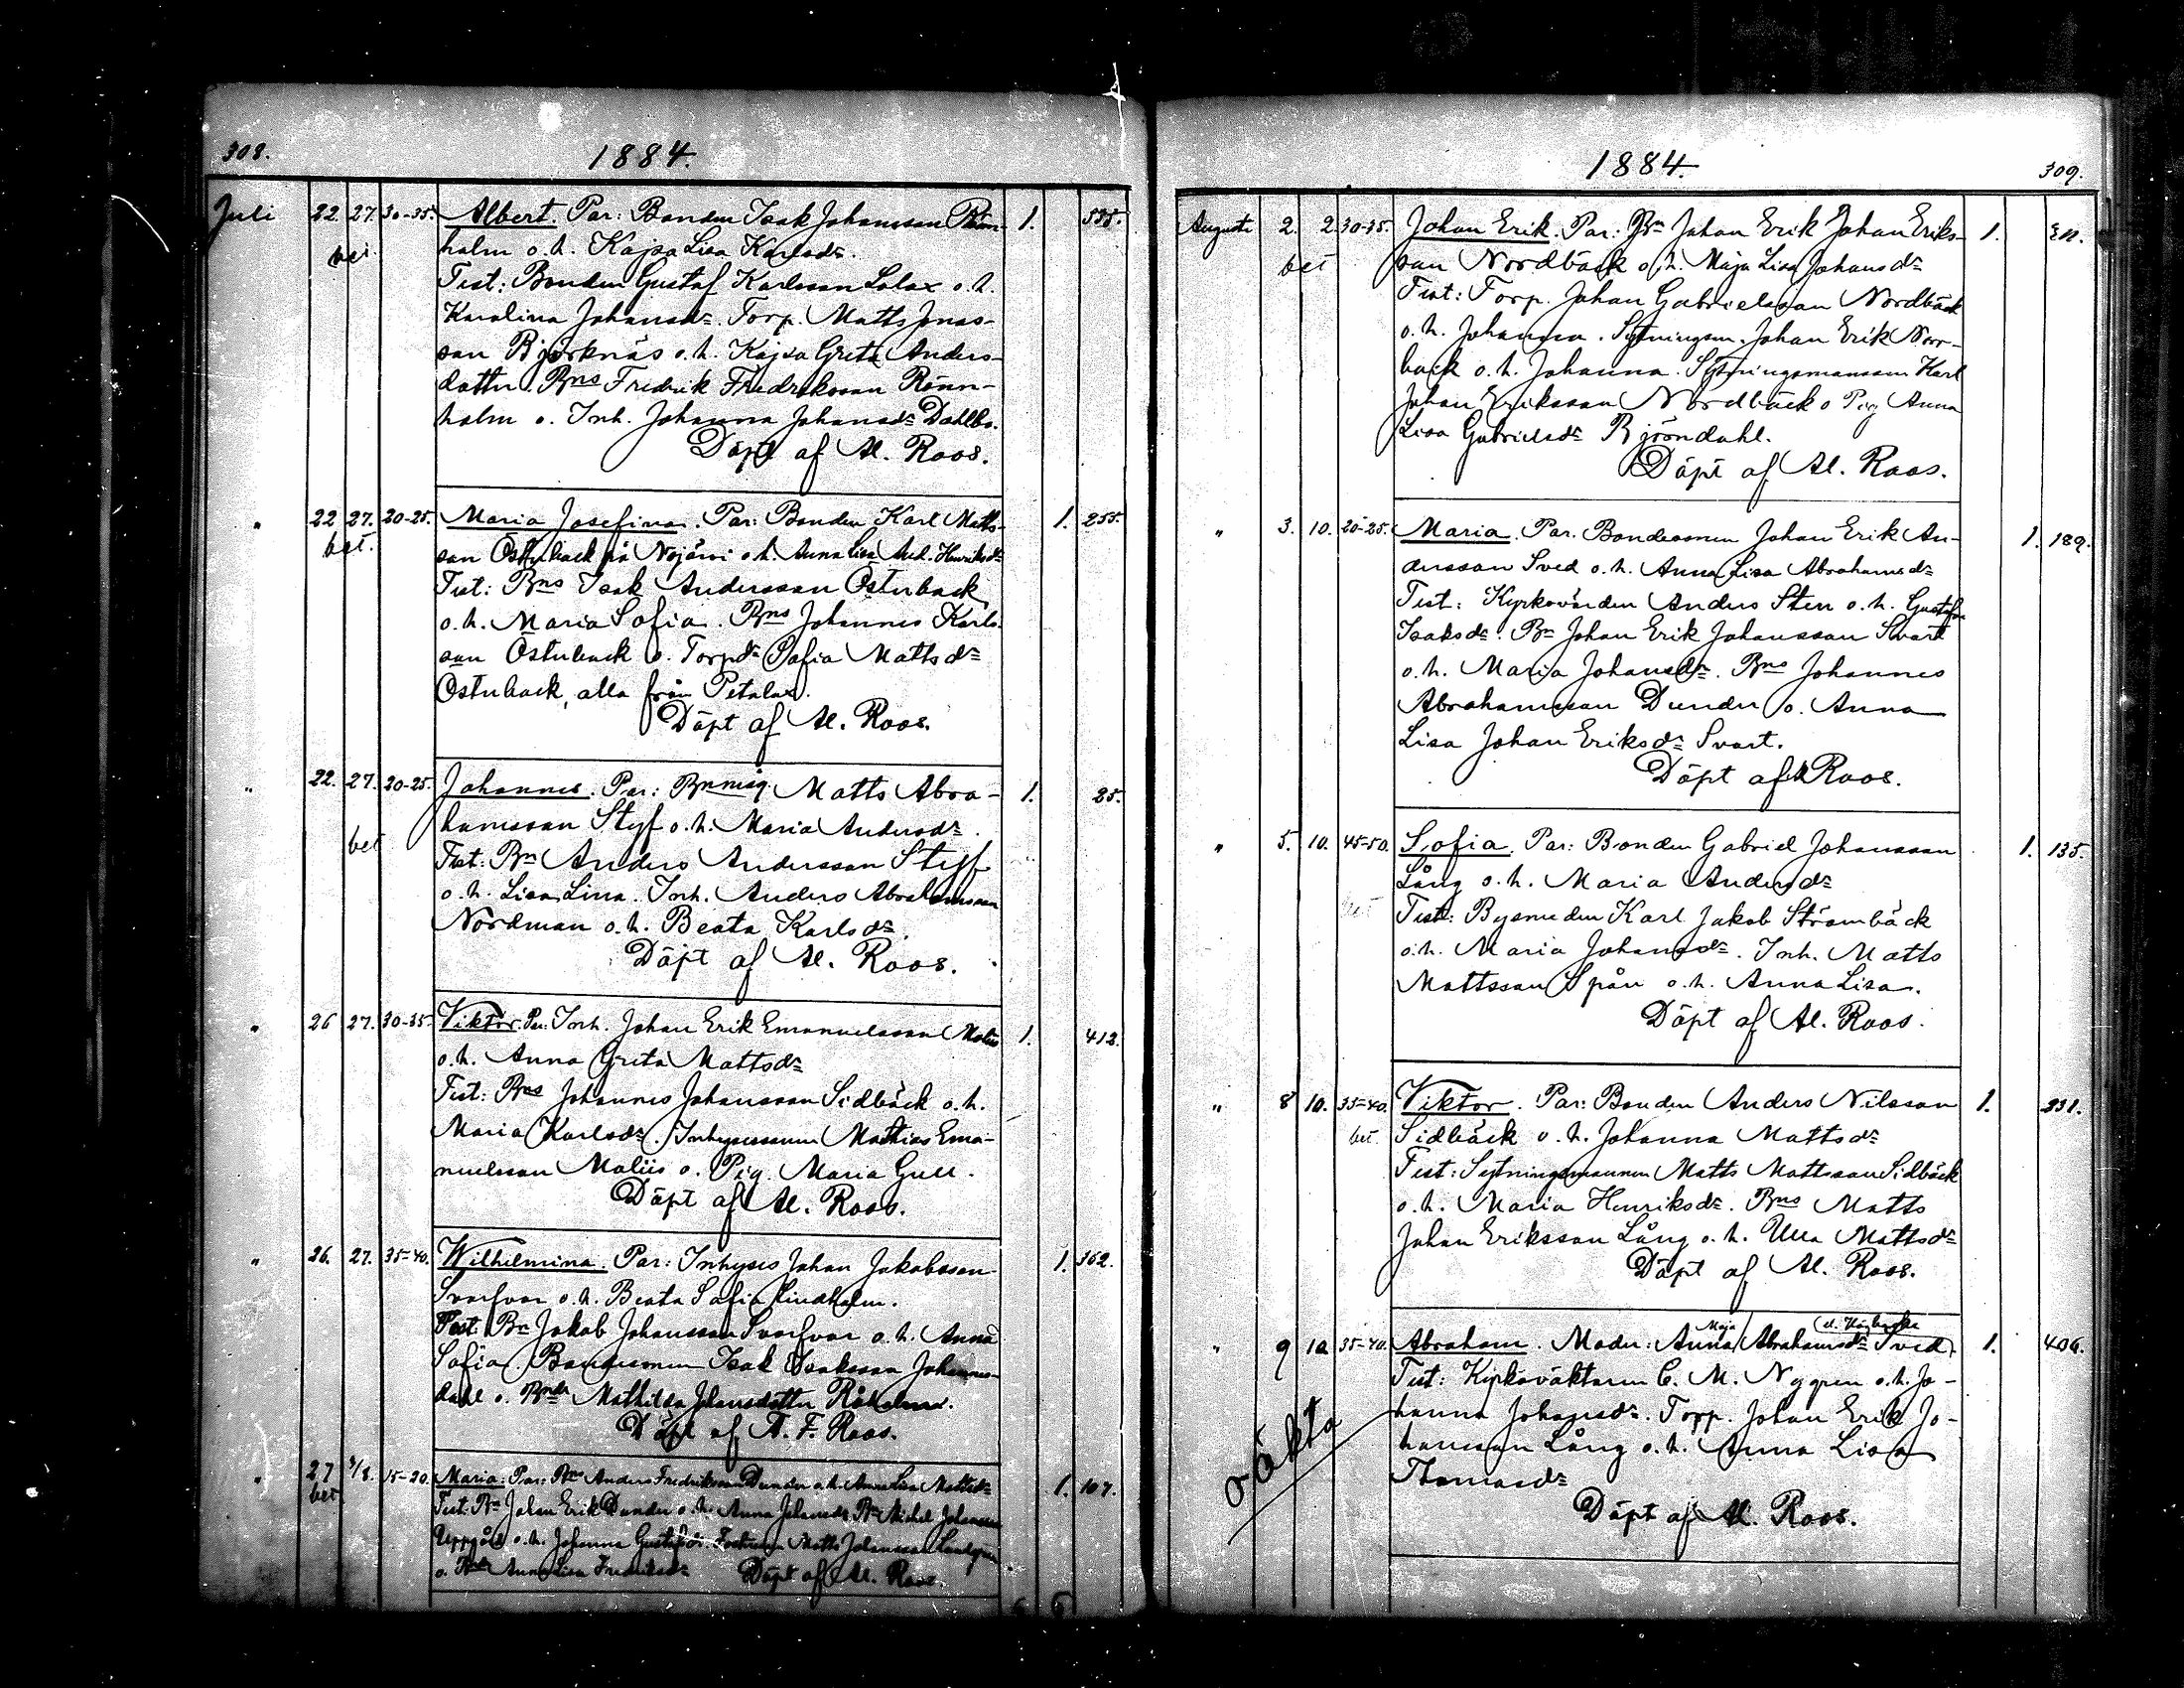 308.
1884.
Juli 22. 27. 30-35. Albert. Par: Bonden Isak Johansson Rönn- 1. 535.
bet. holm o. h. Kajsa Lisa Karlsdr.
Test: Bonden Gustaf Karlsson Lolax o. h.
Karolina Johansdr. Torp. Matts Jonas-
son Björknäs o. h. Kajsa Greta Anders-
dotter. Bns Fredrik Fredriksson Rönn-
holm o. Inh. Johanna Johansdr Dahlbo.
Döpt af Al. Roos.
" 22 27. 20-25. Maria Josefina. Par: Bonden Karl Matts- 1. 255.
bet. son Österback på Nojärvi o. h. Anna Lisa And. Henriksdr
Test: Bns Isak Andersson Österback
o. h. Maria Sofia. Bns Johannes Karls-
son Österback o. Torpdr Sofia Mattsdr
Österback, alla från Petalax.
Döpt af Al. Roos.
" 22. 27. 20-25. Johannes. Par: Bnmåg Matts Abra- 1. 25.
bet hamsson Styf o. h. Maria Andersdr.
Test: Bn Anders Andersson Styf
o. h. Lisa Lina. Inh. Anders Abrahamsson
Nordman o. h. Beata Karlsdr.
Döpt af Al. Roos.
" 26 27. 30-35. Viktor. Par: Inh. Johan Erik Emanuelsson Malus 1. 412.
o. h. Anna Greta Mattsdr
Test: Bns Johannes Johansson Sidbäck o. h.
Maria Karlsdr. Inhysessonen Mathias Ema-
nuelsson Maliis o. Pig. Maria Gull.
Döpt af Al. Roos.
" 26. 27. 35-40. Wilhelmina. Par: Inhyses Johan Jakobsson 1. 362.
Svarfvar o. h. Beata Sofia Lindholm.
Test: Bn Jakob Johansson Svarfvar o. h. Anna
Sofia. Bondesonen Isak Isaksson Johannes-
dahl o. Bndr Mathilda Johansdotter Råholm.
Döpt af A. F. Roos.
" 27 3/8. 15-20. Maria: Par: Bns Anders Fredriksson Dunder o. h. Anna Lisa Mattsdr 1. 107.
bet Test: Bn Johan Erik Dunder o. h. Anna Johansdr, Bn Mickel Johansson
Uppgård o. h. Johanna Gustafsdr. Matts Johansson
o. Bndr Anna Lisa Fredriksdr Döpt af Al. Roos.
6 6
1884.
309.
Augusti 2. 2. 30-35. Johan Erik. Par: Bn Johan Erik Johan Eriks- 1.
bet son Nordbäck o. h. Maja Lisa Johansdr
Test: Torp. Johan Gabrielsson Nordbäck
o. h. Johanna. Sytningsm. Johan Erik Norr-
back o. h. Johanna. Sytningsmansson Karl
Johan Eriksson Nordbäck o Pig Anna
Lisa Gabrielsdr Björndahl.
Döpt af Al. Roos.
" 3. 10. 20-25. Maria. Par. Bondesonen Johan Erik An- 1. 189.
dersson Sved o. h. Anna Lisa Abrahamsdr
Test: Kyrkovärden Anders Sten o. h. Gustafva
Isaksdr. Bn Johan Erik Johansson Svart
o. h. Maria Johansdr. Bns Johannes
Abrahamsson Dunder o. Anna
Lisa Johan Eriksdr Svart.
Döpt af Al Roos.
" 5. 10. 45-50. Sofia. Par: Bonden Gabriel Johansson 1. 135.
bet Lång o. h. Maria Andersdr
Test: Bysmeden Karl Jakob Strömbäck
o. h. Maria Johansdr. Inh. Matts
Mattsson Spån o. h. Anna Lisa.
Döpt af Al. Roos.
" 8 10. 35-40. Viktor. Par: Bonden Anders Nilsson 1. 331.
bet. Sidbäck o. h. Johanna Mattsdr
Test: Sytningsmannen Matts Mattsson Sidbäck
o. h. Maria Henriksdr. Bns Matts
Johan Eriksson Lång o. h. Ulla Mattsdr
Döpt af Al. Roos.
" 9 10. 35-40. Abraham. Moder: Anna Maja Abrahamsdr Sved. 1. 406.
Test: Kyrkoväktaren C. M. Nygren o. h. Jo-
oäkta hanna Johansdr. Torp. Johan Erik Jo-
hansson Lång o. h. Anna Lisa
Thomasdr
Döpt af Al. Roos.